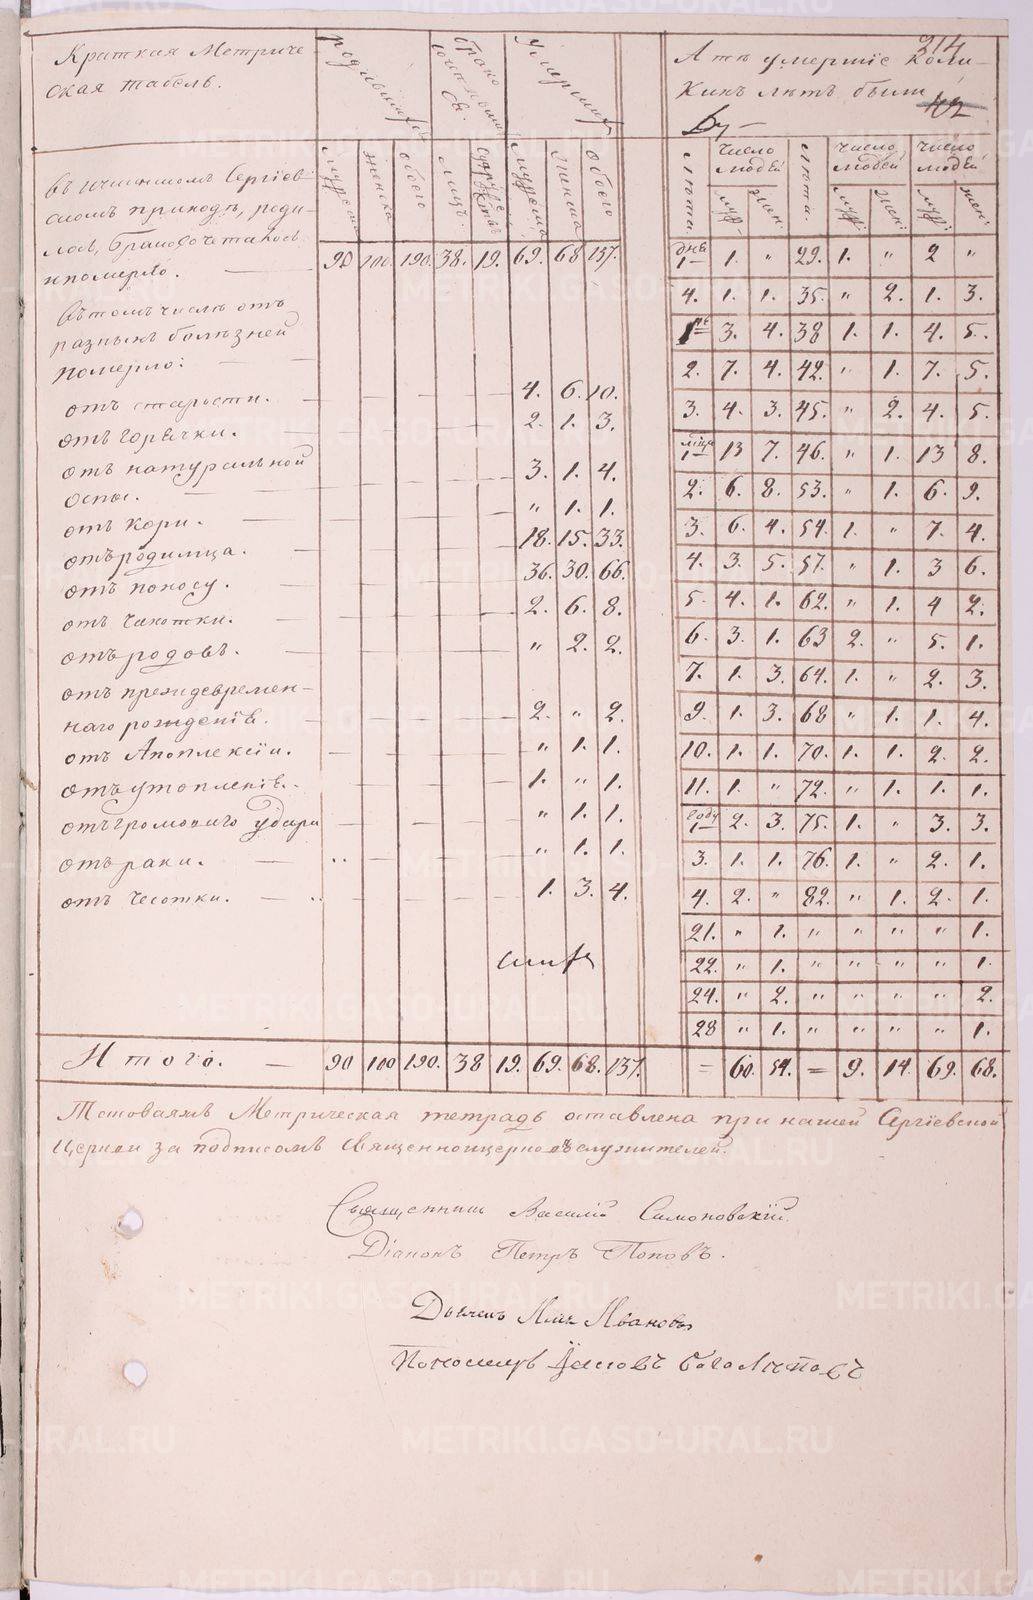 Краткая Метриче-
ская табель.
родившихся
брако
Умерших
314
А тѣ умершіе коли-
кихъ лѣтъ были
102
мужеска
женска
обоего
лицъ
мужеска
женска
обоего
Лѣта.
число людей
Лѣта.
число людей
число людей
муж:
жен:
муж:
жен:
муж:
жен:
приходѣ, роди-
лось, браковочеталось
и померло. — 90 100 190. 38. 19. 69. 68 137.
въ томъ числѣ отъ
разныхъ болѣзней
померло:
отъ старости. — 4. 6. 10.
отъ горячки. — 2. 1. 3.
отъ натуральной
оспы. — 3. 1. 4.
отъ кори. — " 1. 1.
отъ родимца. — 18. 15. 33.
отъ поносу. — 36. 30. 66.
отъ чахотки. — 2. 6. 8.
отъ родовъ. — " 2. 2.
отъ преждевремен-
наго рожденія. — 2. " 2.
отъ Апоплексіи. — " 1. 1.
отъ утопленія. — 1. " 1.
отъ громоваго удара — " 1. 1.
отъ раки. — " 1. 1.
отъ чесотки. — 1. 3. 4.
дне 1 1. " 29. 1. " 2 "
4. 1. 1. 35. " 2. 1. 3.
1 3. 4. 38 1. 1. 4. 5.
2. 7. 4. 42. " 1. 7. 5.
3. 4. 3. 45. " 2. 4. 5.
1 13 7. 46. " 1. 13 8.
2. 6. 8. 53. " 1. 6. 9.
3. 6. 4. 54. 1. " 7. 4.
4. 3. 5. 57. " 1. 3 6.
5. 4. 1. 62. " 1. 4 2.
6. 3. 1. 63 2. " 5. 1.
7. 1. 3. 64. 1. " 2. 3.
9. 1. 3. 68 " 1. 1. 4.
10. 1. 1. 70. 1. 1. 2. 2.
11. 1. " 72. " 1. 1. 1.
году 1 2. 3. 75. 1. " 3. 3.
3. 1. 1. 76. 1. " 2. 1.
4. 2. " 82. " 1. 2. 1.
21. " 1. " " " " 1.
22. " 1. " " " " 1.
24. " 2. " " " " 2.
28 " 1. " " " " 1.
Итого. — 90 100 190. 38 19. 69. 68. 137. = 60. 54. = 9. 14 69. 68.
Таковаяжъ Метрическая тетрадь оставлена при нашей Сергіевской
Церкви за подписомъ Священноцерковнослужителей.
Священник Василій Симоновскій
Діаконъ Петръ Поповъ.
Ивановъ
METRIKI.GASO-URAL.RU